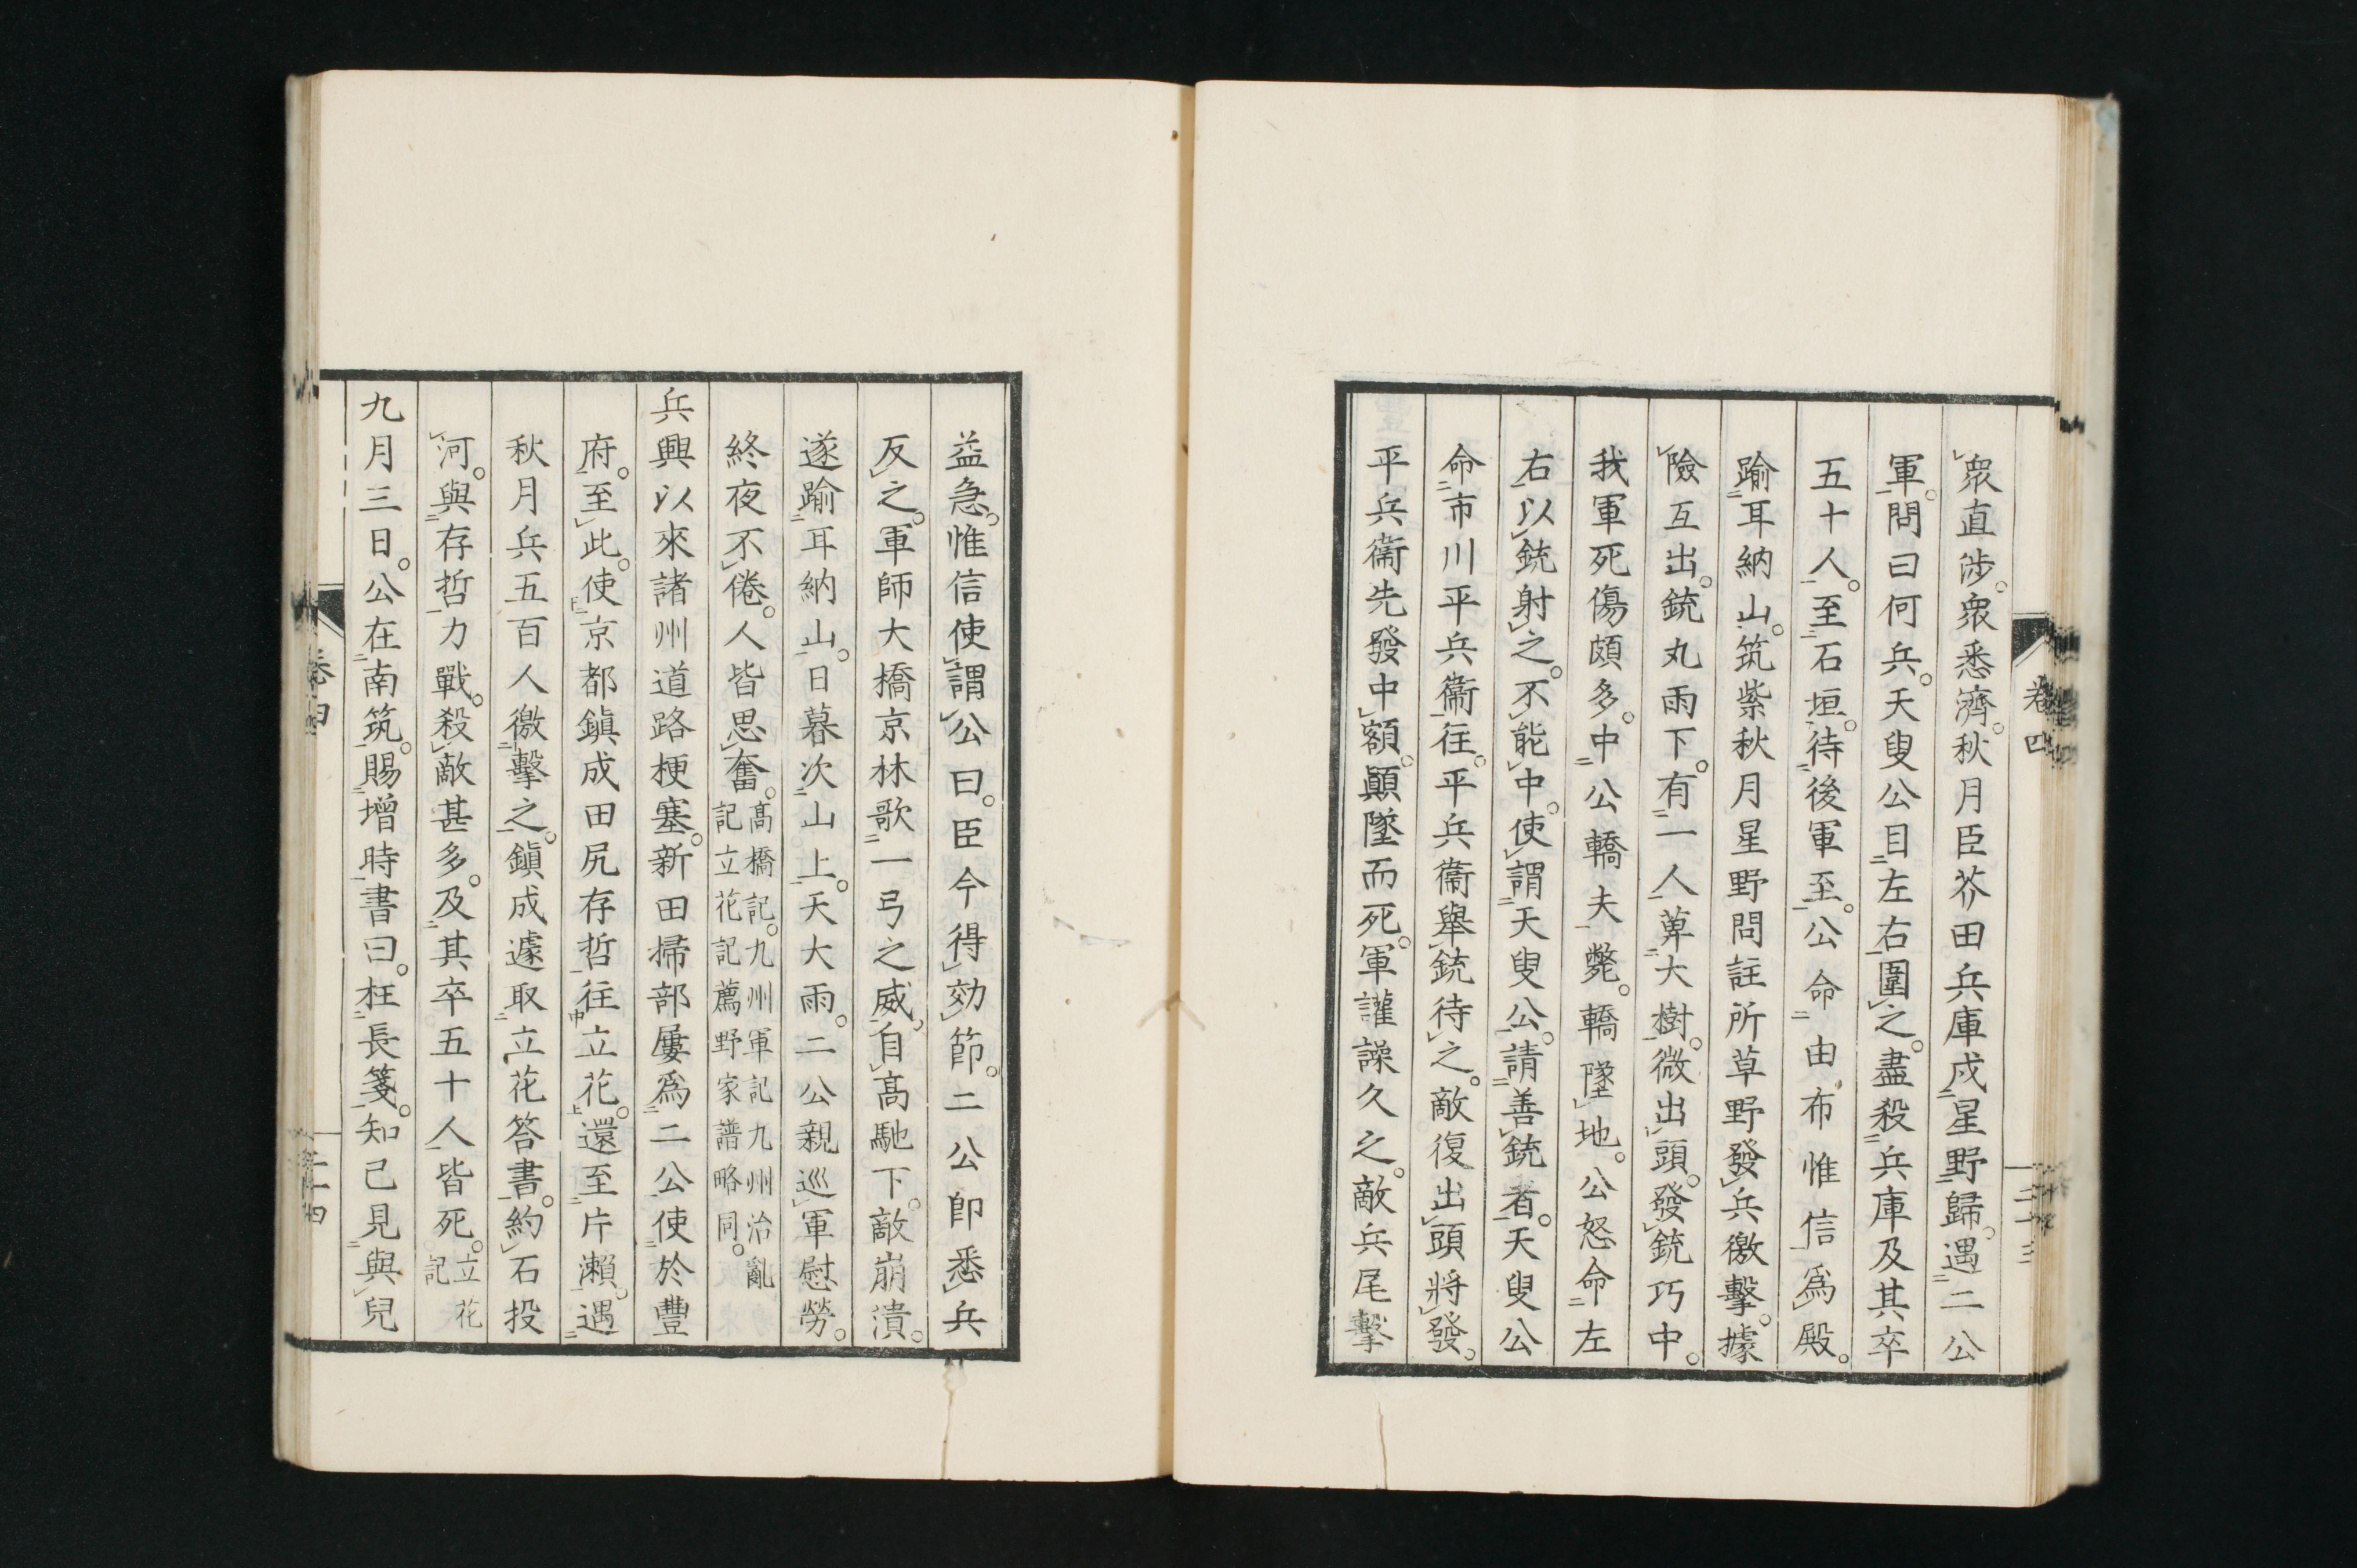 衆直渉。衆悉濟。秋月臣芥田兵庫戍星野歸。遇二公
軍。問曰何兵。天叟公目左右圍之。盡殺兵庫及其卒
五十人。至石垣。待後軍至。公命由布惟信爲殿。
踰耳納山。筑紫秋月星野問註所草野發兵徼擊。據
險互出。銃丸雨下。有一人萆大樹。微出頭。發銃巧中。
我軍死傷頗多。中公轎夫斃。轎墜地。公怒命左
右以銃射之。不能中。使謂天叟公。請善銃者。天叟公
命市川平兵衞往。平兵衞舉銃待之。敵復出頭將發。
平兵衞先發中額。顚墜而死。軍讙譟久之。敵兵尾擊
卷四
二十三
益急。惟信使謂公曰。臣今得効節。二公卽悉兵
反之。軍師大橋京林歌一弓之威。自髙馳下。敵崩潰。
遂踰耳納山。日暮次山上。天大雨。二公親巡軍慰勞。
終夜不倦。人皆思奮。髙橋記。九州軍記九州治亂
記立花記薦野家譜略同。
兵興以來諸州道路梗塞。新田掃部屢爲二公使於豐
府。至此。使京都鎭成田尻存哲往立花。還至片瀨。遇
秋月兵五百人徼擊之。鎭成遽取立花答書。約石投
河。與存哲力戰。殺敵甚多。及其卒五十人皆死。立花
記
九月三日。公在南筑。賜增時書曰。枉長箋。知己見與兒
卷四
二十四